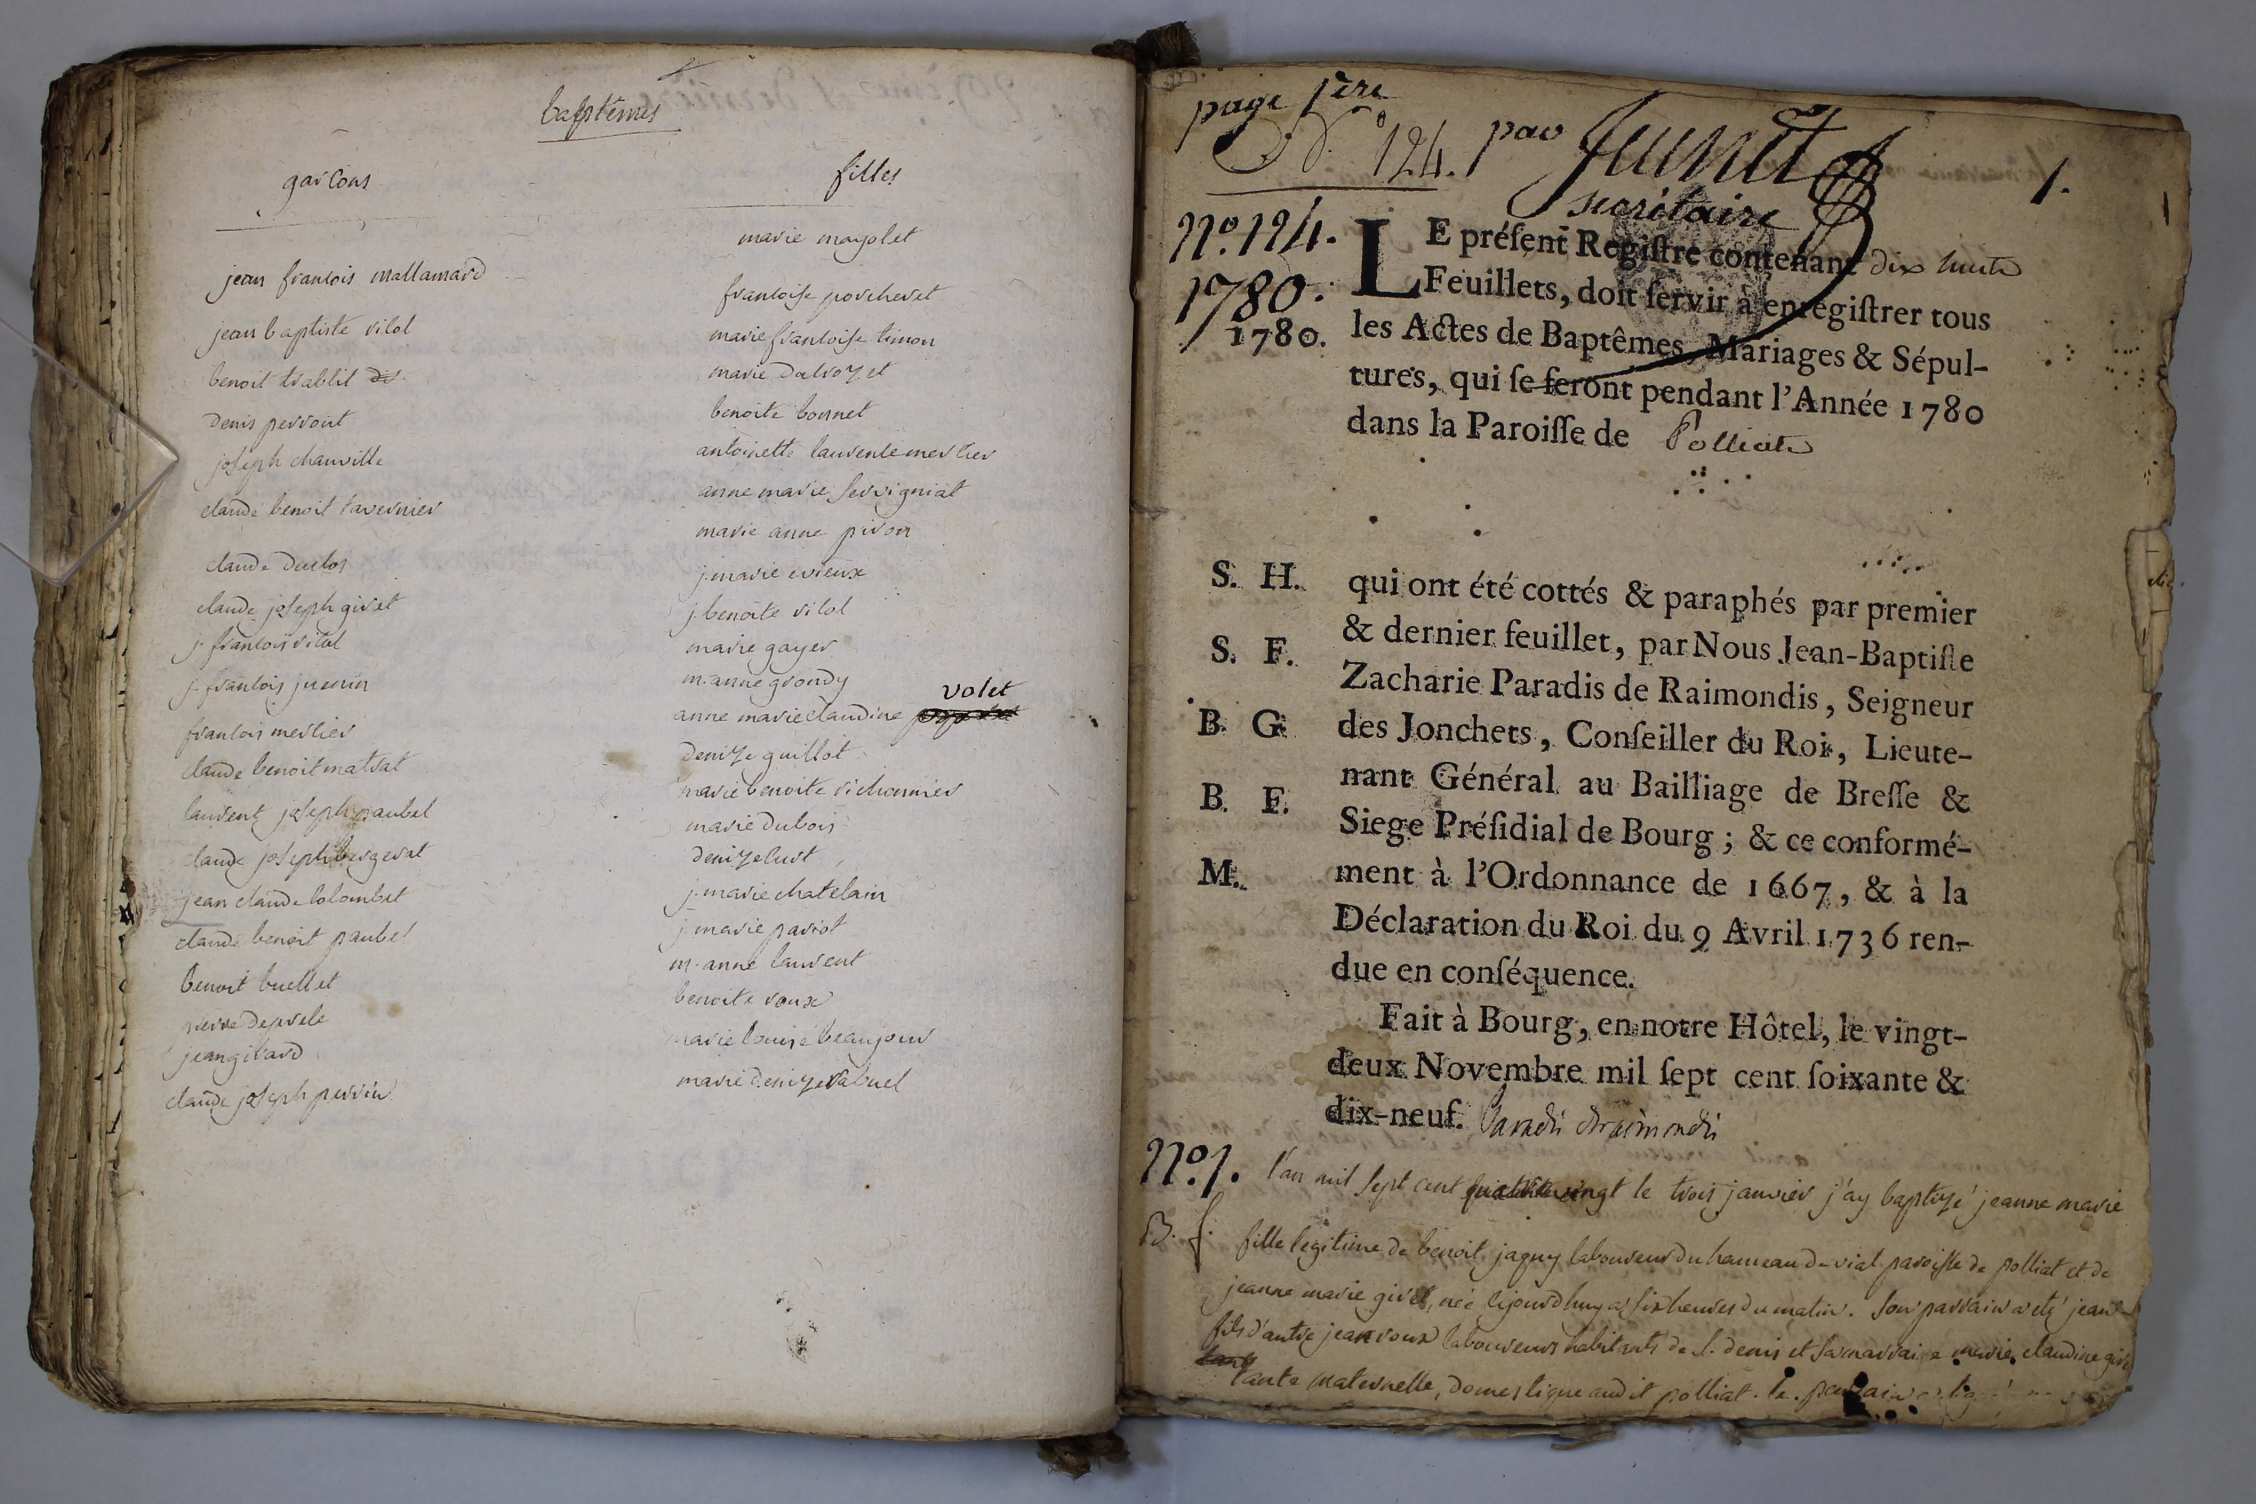 baptêmes
garçons
jean francois mallamard
jean baptiste vilol
benoit trablit
denis perrout
joseph chanville
claude benoit tavernier
claude duclos
claude joseph givet
j. francois vilol
j. francois juenin
francois mercier
claude benoit matrat
laurent joseph paubel
claude joseph bergerat
jean claude colombet
claude benoit paubel
benoit buellet
pierre
jean girard
claude joseph perrin
filles
marie mayolet
francoise porcheret
marie francoise timon
marie dalrozet
benoite bonnet
antoinette laurente mercier
anne marie servigniat
marie anne piron
j. marie evieux
j. benoite vilol
marie gayer
m. anne grondy
anne marie claudine volet
denize guillot
marie benoite vichonnier
marie dubois
denize curt
j. marie chatelain
j. marie pariot
m. anne laurent
benoite roux
marie louise beaujour
marie denize
page 1ere
N.° 124. par
secrétaire
1.
N.° 124.
1780.
1780.
LE préſent Regiſtre contenant dix huit
Feuillets, doit ſervir à enregiſtrer tous
les Actes de Baptêmes, Mariages & Sépul-
tures, qui ſe feront pendant l'Année 1780
dans la Paroiſſe de Polliat
S. H.
S. F.
B. G.
B. F.
M.
qui ont été cottés & paraphés par premier
& dernier feuillet, par Nous Jean-Baptiſte
Zacharie Paradis de Raimondis, Seigneur
des Jonchets, Conſeiller du Roi, Lieute-
nant Général au Bailliage de Breſſe &
Siege Préſidial de Bourg; & ce conformé-
ment à l'Ordonnance de 1667, & à la
Déclaration du Roi du 9 Avril 1736 ren-
due en conſéquence.
Fait à Bourg, en notre Hôtel, le vingt-
deux Novembre mil ſept cent ſoixante &
dix-neuf. Paradis deraimondis
N.° 1. l'an mil sept cent quatre vingt le trois janvier j'ay baptizé jeanne marie
B. f. fille legitime de benoit jaquy laboureur du hameau de vial paroisse de polliat et de
jeanne marie givet, née cejourdhuy a six heures du matin. son parrain a eté jean
fils d'autre jean roux laboureurs habitants de s. denis et sa marraine marie claudine
tante maternelle, domestique audit polliat. le parrain